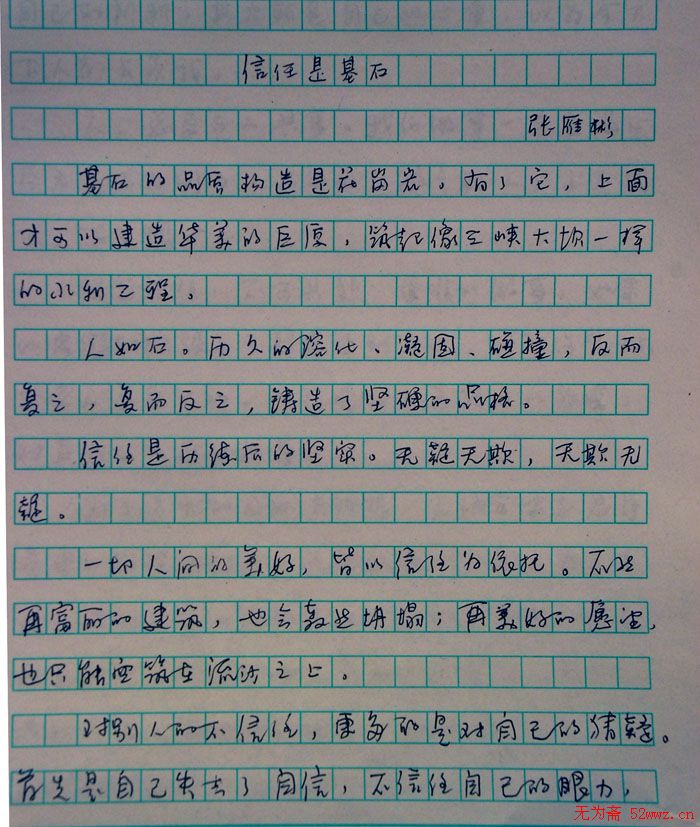 信任是基石
张雁彬
基石的品质构造是花岗岩。有了它,上面
才可以建造华美的巨厦,筑起像三峡大坝一样
的水利工程。
人如石。历久的溶化、凝固、碰撞,反而
复之,复而反之,铸造了坚硬的品格。
信任是历练后的坚实。无疑无欺,无欺无
疑。
一切人间的美好,皆以信任为依托。不然
再富丽的建筑,也会轰然坍塌;再美好的愿望,
也只能空筑在流沙之上。
对别人的不信任,更多的是对自己的猜疑。
首先是自己失去了自信,不信任自己的眼力,
无为斋 52wwz.cn